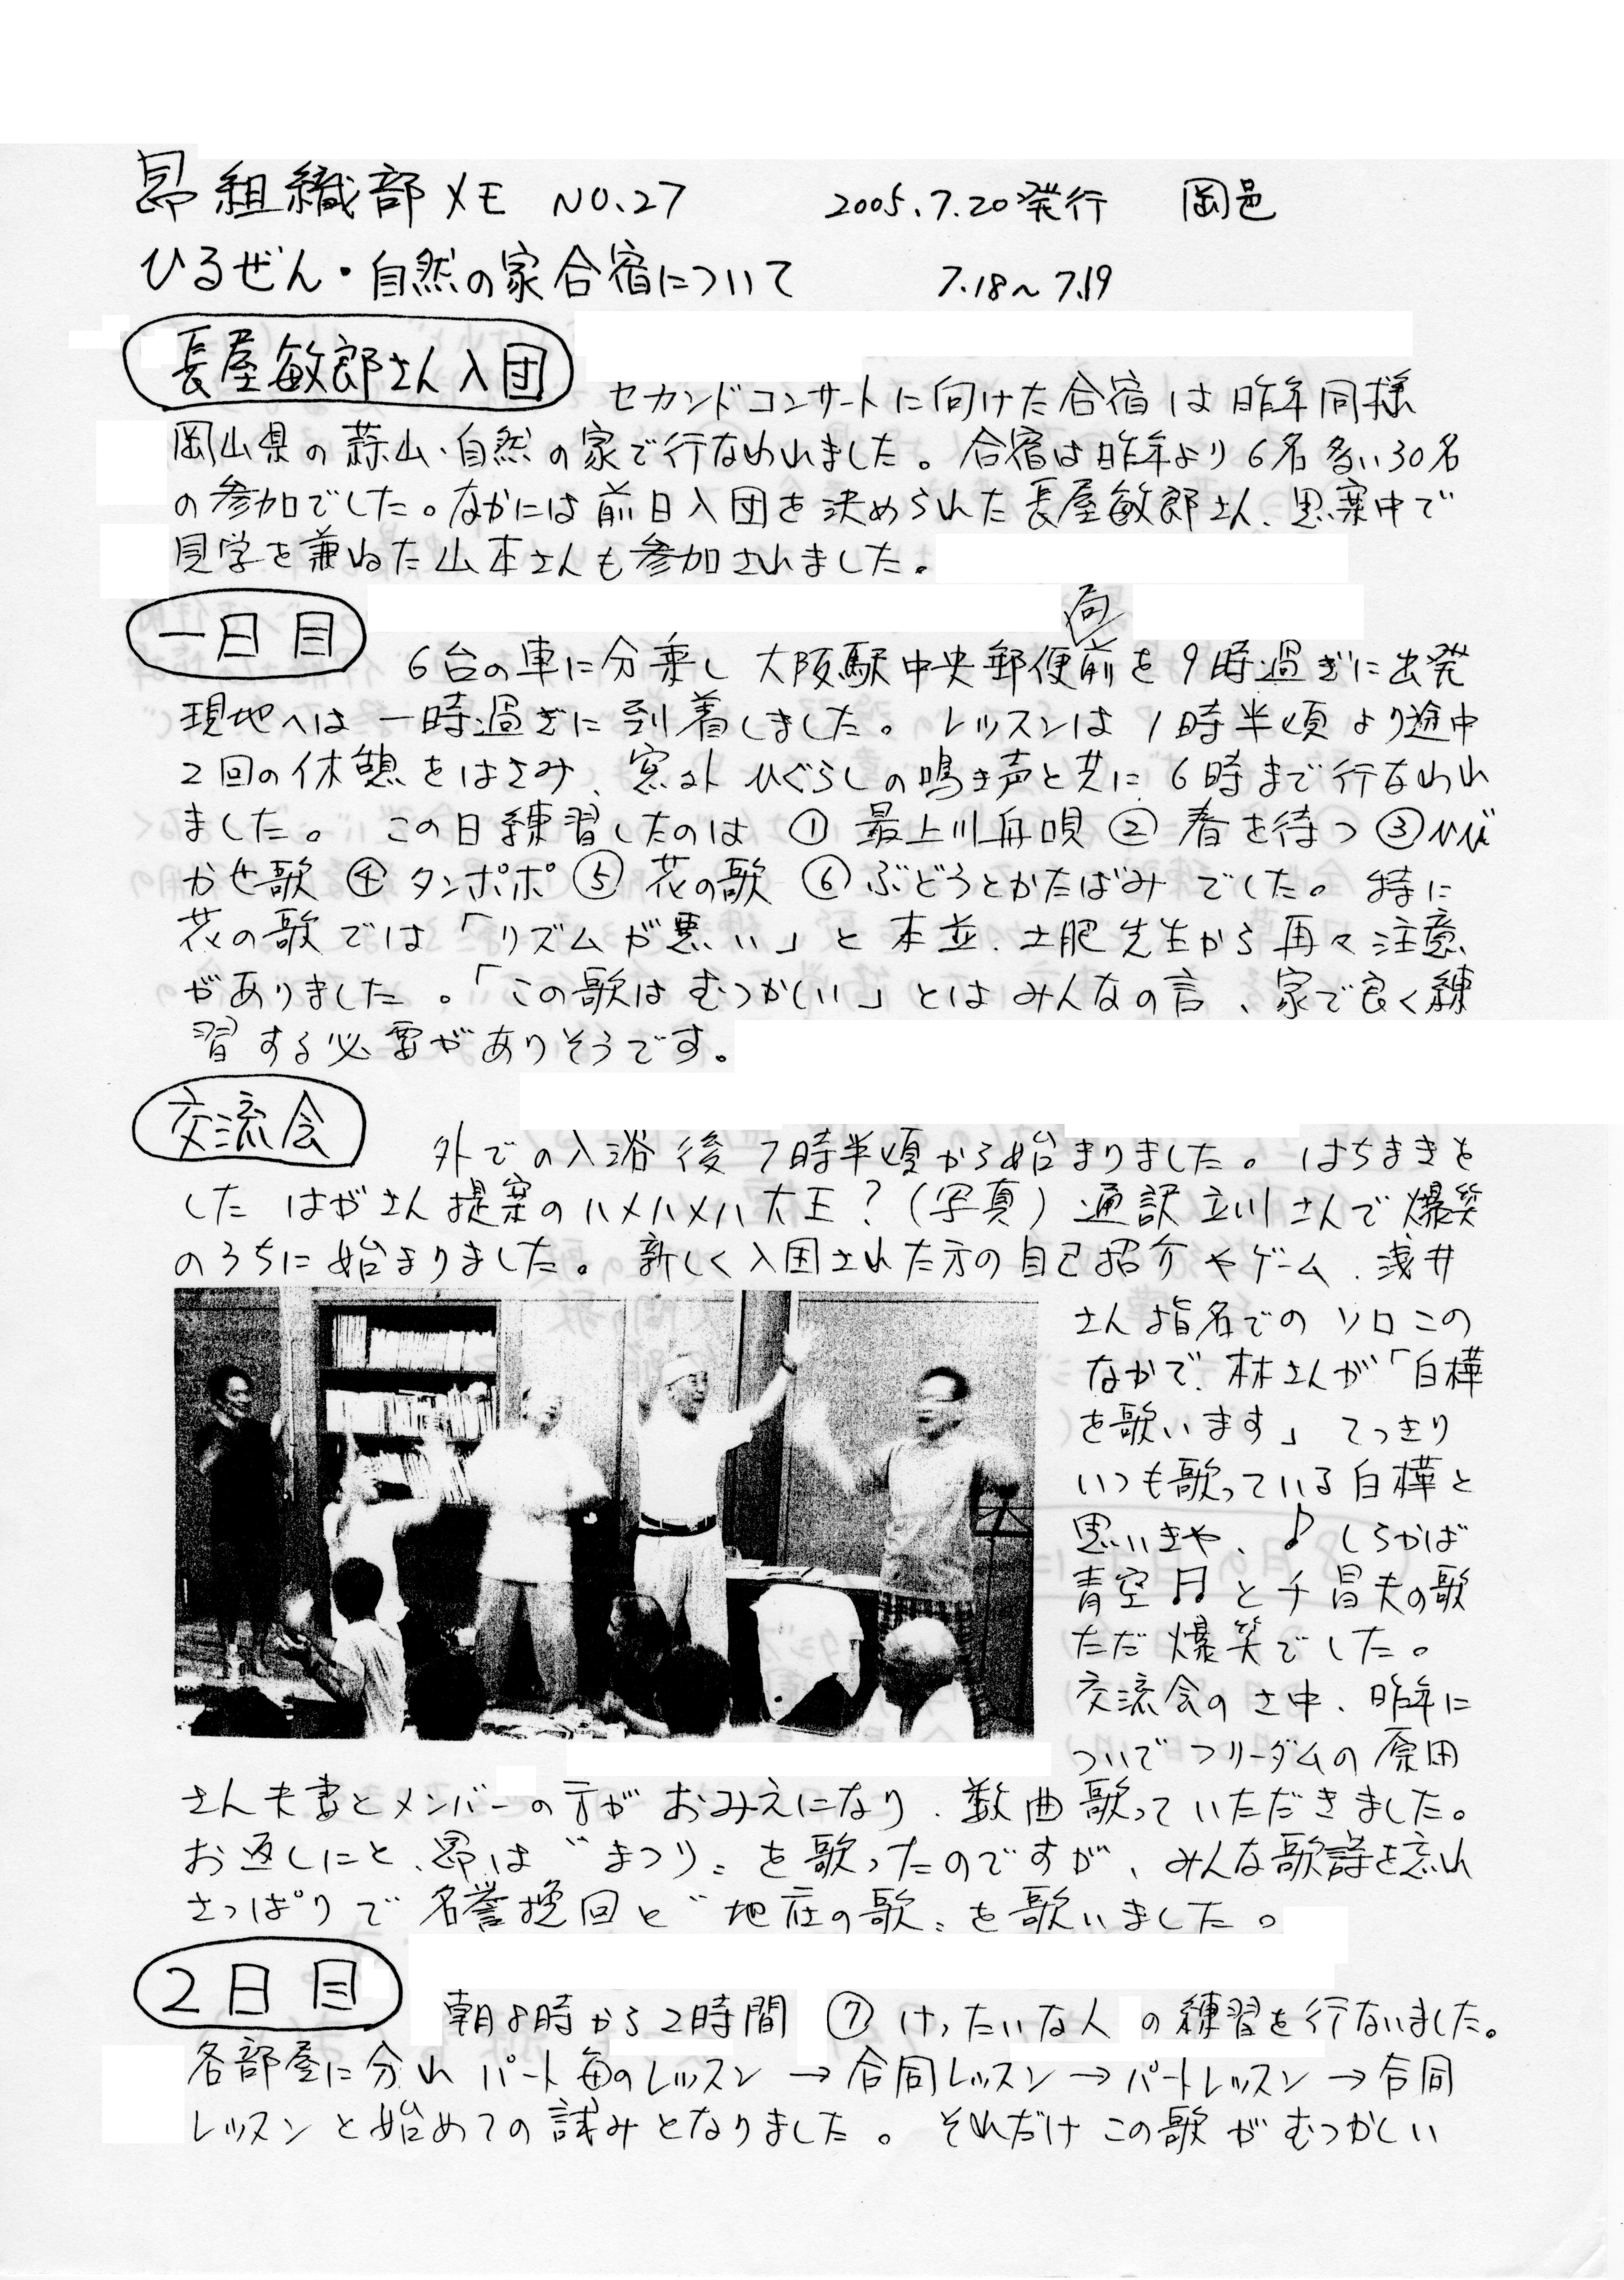 昴組織部メモ NO.27 2005.7.20発行 岡邑
ひるぜん・自然の家合宿について 7.18～7.19
長屋敏郎さん入団
セカンドコンサートに向けた合宿は昨年同様
岡山県の蒜山・自然の家で行なわれました。合宿は昨年より6名多い30名
の参加でした。なかには前日入団を決められた長屋敏郎さん、思案中で
見学を兼ねた山本さんも参加されました。
一日目
6台の車に分乗し大阪駅中央郵便局前を9時過ぎに出発
現地へは一時過ぎに到着しました。レッスンは1時半頃より途中
2回の休憩をはさみ、窓外ひぐらしの鳴き声と共に6時まで行なわれ
ました。この日練習したのは ① 最上川舟唄 ② 春を待つ ③ ひび
かせ歌 ④ タンポポ ⑤ 花の歌 ⑥ ぶどうとかたばみ でした。特に
花の歌では「リズムが悪い」と本並、土肥先生から再々注意
がありました。「この歌はむつかしい」とはみんなの言、家で良く練
習する必要がありそうです。
交流会
外での入浴後7時半頃から始まりました。はちまきを
した はがさん提案のハメハメハ大王？(写真) 通訳立川さんで爆笑
のうちに始まりました。新しく入団された方の自己紹介やゲーム、浅井
さん指名でのソロこの
なかで、林さんが「白樺
を歌います」てっきり
いつも歌っている白樺と
思いきや、♪ しらかば
青空♫と千昌夫の歌
ただ爆笑でした。
交流会のさ中、昨年に
ついでフリーダムの原田
さん夫妻とメンバーの方がおみえになり、数曲歌っていただきました。
お返しにと、昴は〝まつり〟を歌ったのですが、みんな歌詩を忘れ
さっぱりで名誉挽回と〝地底の歌〟を歌いました。
2日目
朝8時から2時間 ⑦ けったいな人 の練習を行ないました。
各部屋に分れパート毎のレッスン→合同レッスン→パートレッスン→合同
レッスンと始めての試みとなりました。それだけこの歌がむつかしい